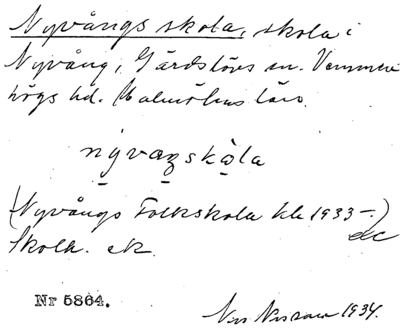 Nyvångs skola, skola i
Nyvång, Gärdslövs sn. Vemmen-
högs hd. Malmöhus län.
nyvaŋskåla
(Nyvångs Folkskola kle 1933 –.)
Skolk. ek.
Nr 5864.
Nils Nilsson 1934.